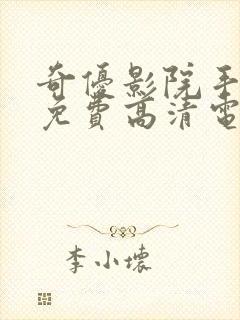 奇優影院手
免費高清電
李小壞